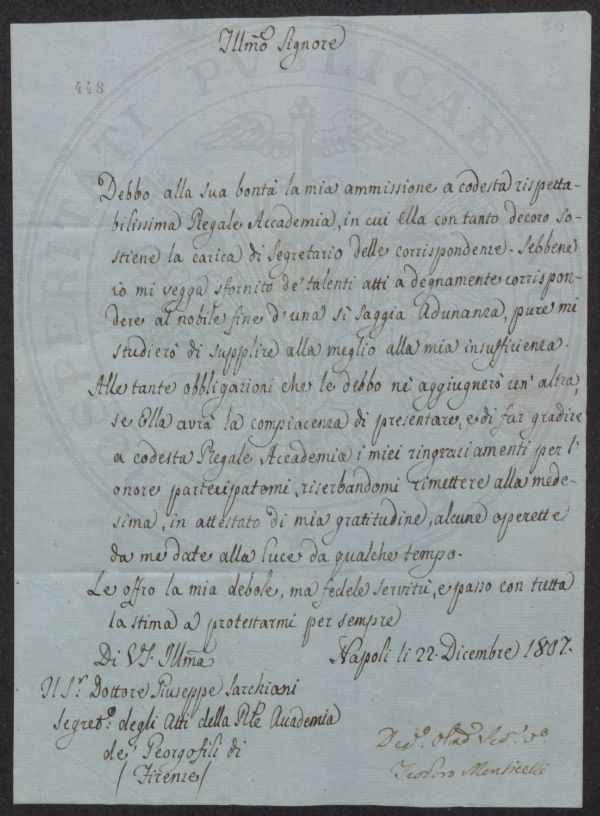 Illmo Signore
448
Debbo alla sua bontà la mia ammissione a codesta rispetta-
bilissima Regale Accademia, in cui ella con tanto decoro so-
stiene la carica di Segretario delle corrispondenze. Sebbene
io mi vegga sfornito de' talenti atti a degnamente corrispon-
dere al nobile fine d'una sì saggia Adunanza, pure mi
studierò di supplire alla meglio alla mia insufficienza.
Alle tante obbligazioni che le debbo ne aggiugnerò un' altra,
se Ella avrà la compiacenza di presentare, e di far gradire
a codesta Regale Accademia i miei ringraziamenti per l'
onore partecipatomi, riserbandomi rimettere alla mede-
sima, in attestato di mia gratitudine, alcune operette
da me date alla luce da qualche tempo.
Le offro la mia debole, ma fedele servitù, e passo con tutta
la stima a protestarmi per sempre
Di VS. Illma
Napoli li 22. Dicembre 1807.
Il Sr. Dottore Giuseppe Sarchiani
Segreto. degli Atti della Rle Accademia
de' Georgofili di
/ Firenze /
Devo. Obbo Sero. vo
Teodoro Monticelli
SPERITATI PUBLICAE